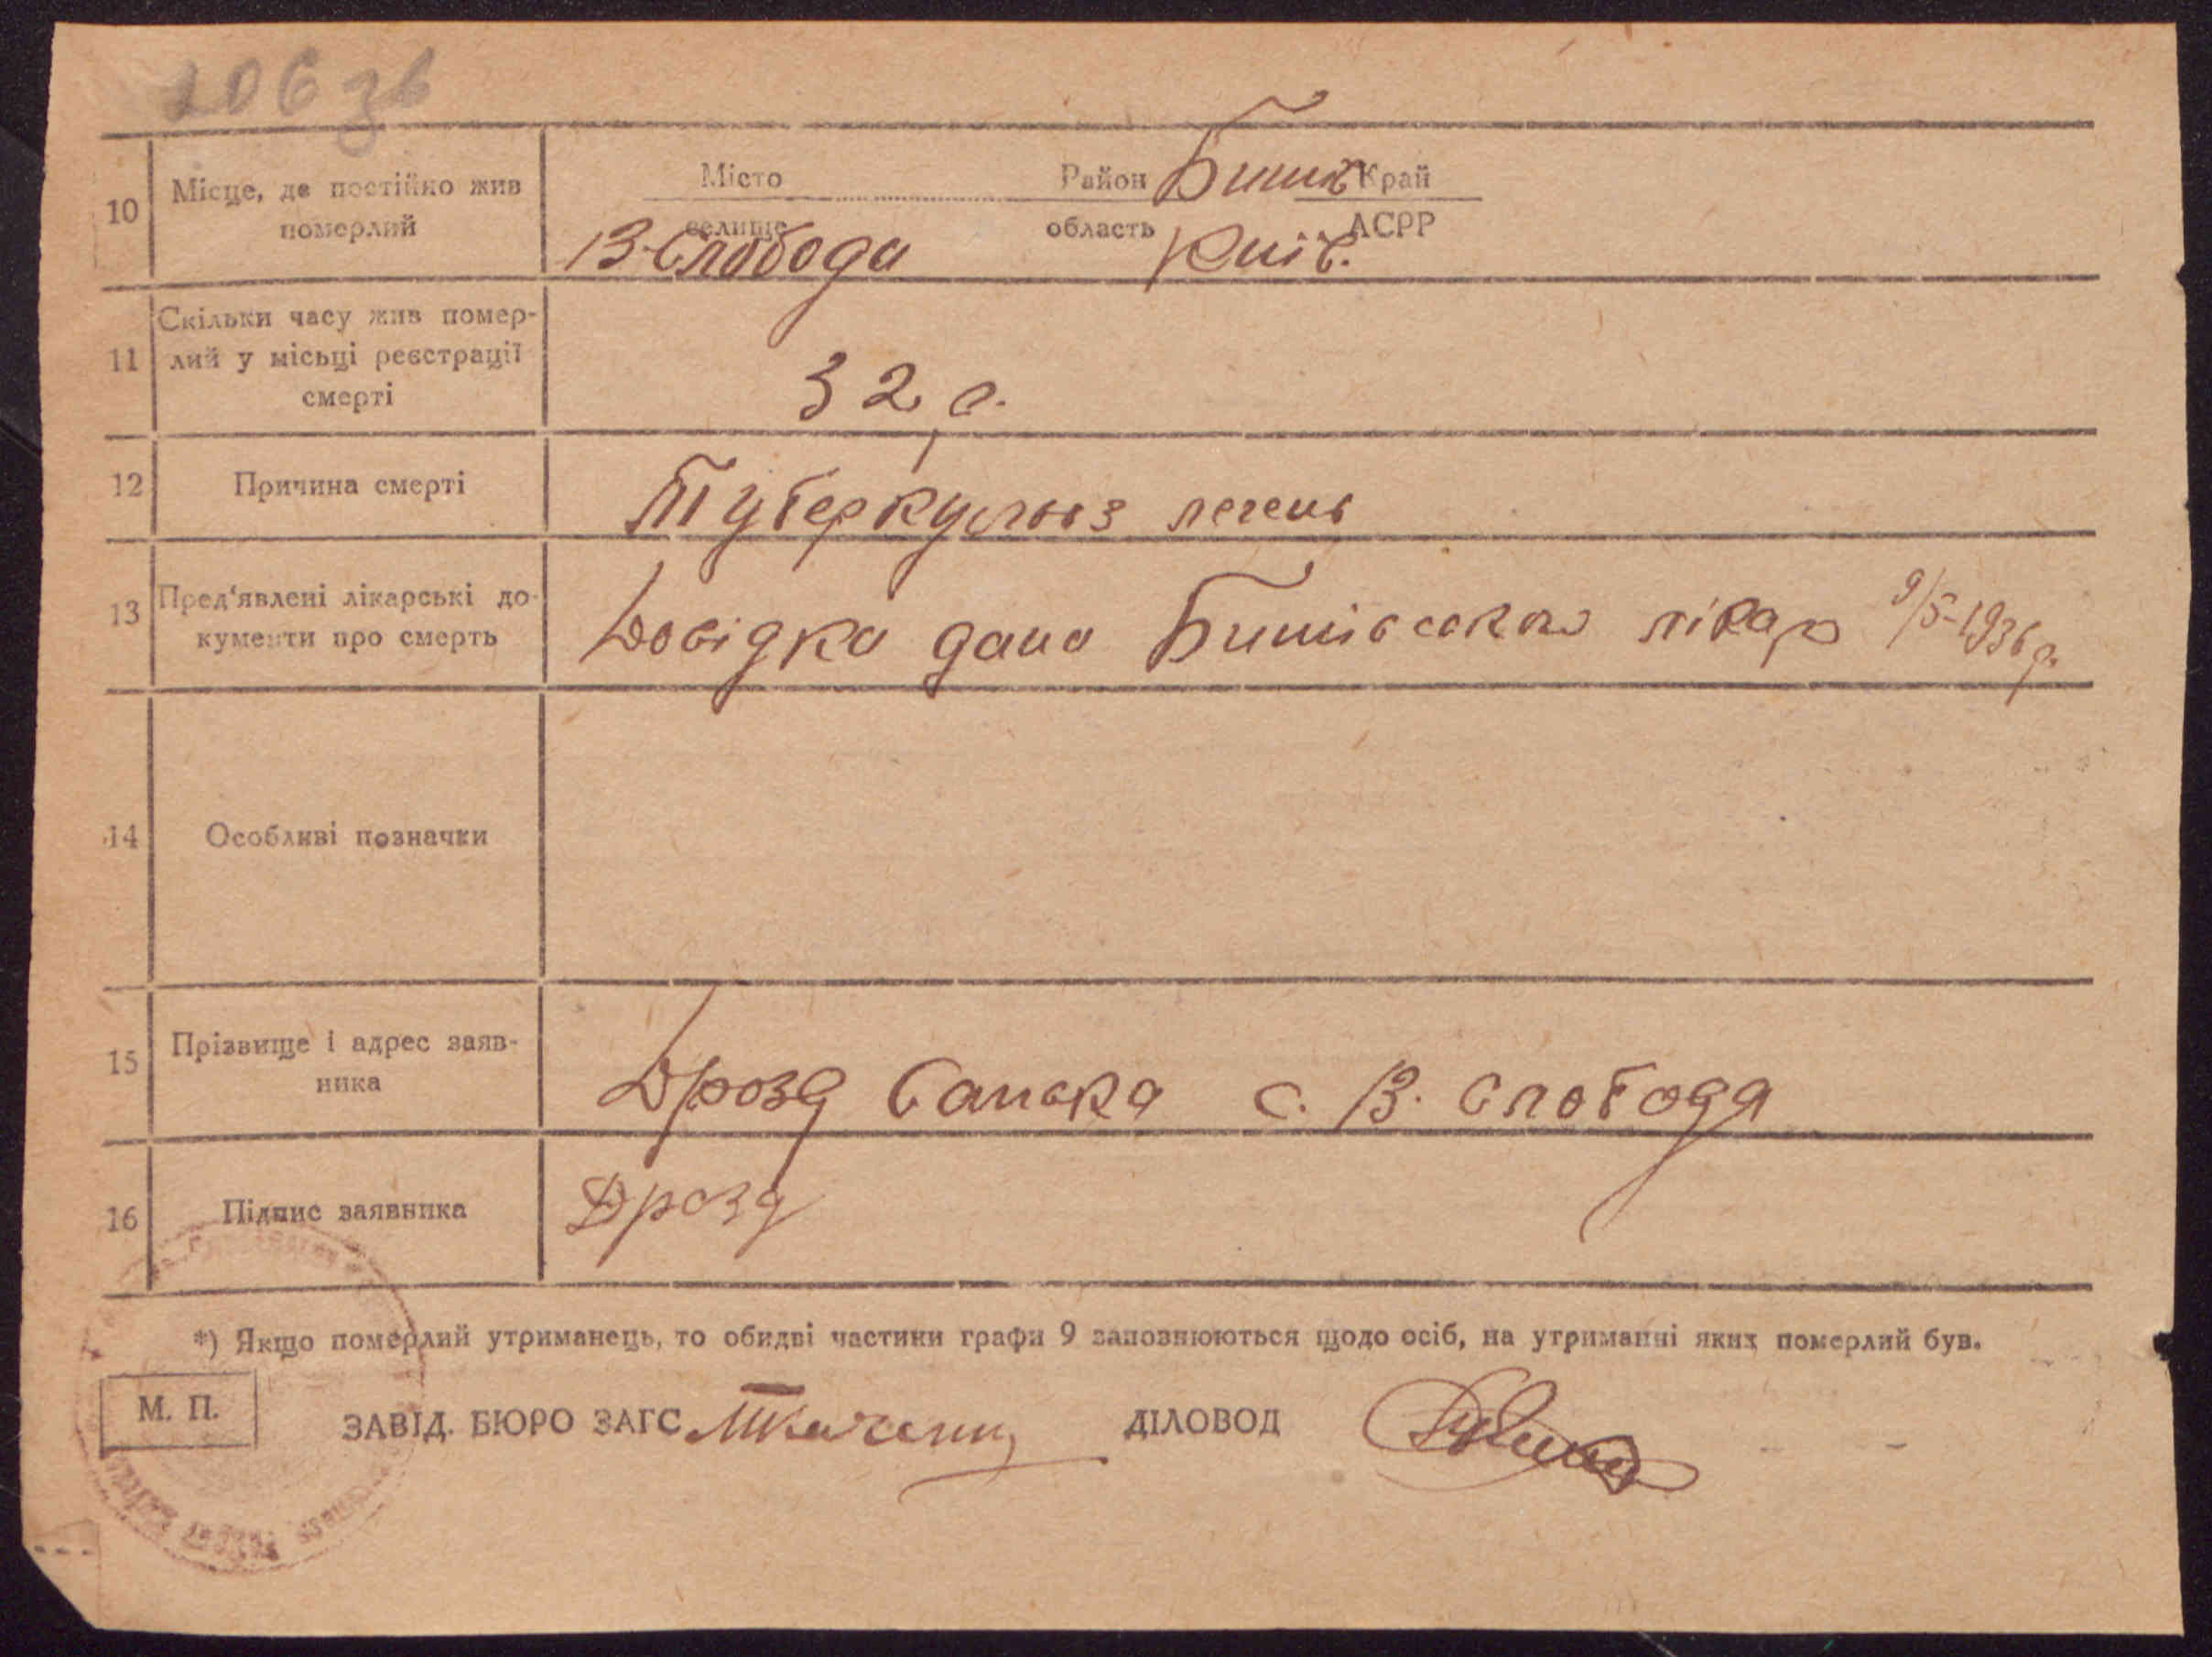 206 зв
10 Місце, де постійно жив померлий
Місто Район Бишів Край
селище область АСРР
В-Слобода Київ.
11 Скільки часу жив помер-
лий у місьці реєстрації
смерті
32 р.
12 Причина смерті
Туберкульоз легень
13 Пред'явлені лікарські до-
кументи про смерть
Довідка дана Бишівською лікар 9/5-1936 р.
14 Особливі позначки
15 Прізвище і адрес заяв-
ника
Дрозд с. В. Слобода
16 Підпис заявника
Дрозд
*) Якщо померлий утриманець, то обидві частини графи 9 заповнюються щодо осіб, на утриманні яких померлий був.
М. П.
ЗАВІД. БЮРО ЗАГС ДІЛОВОД